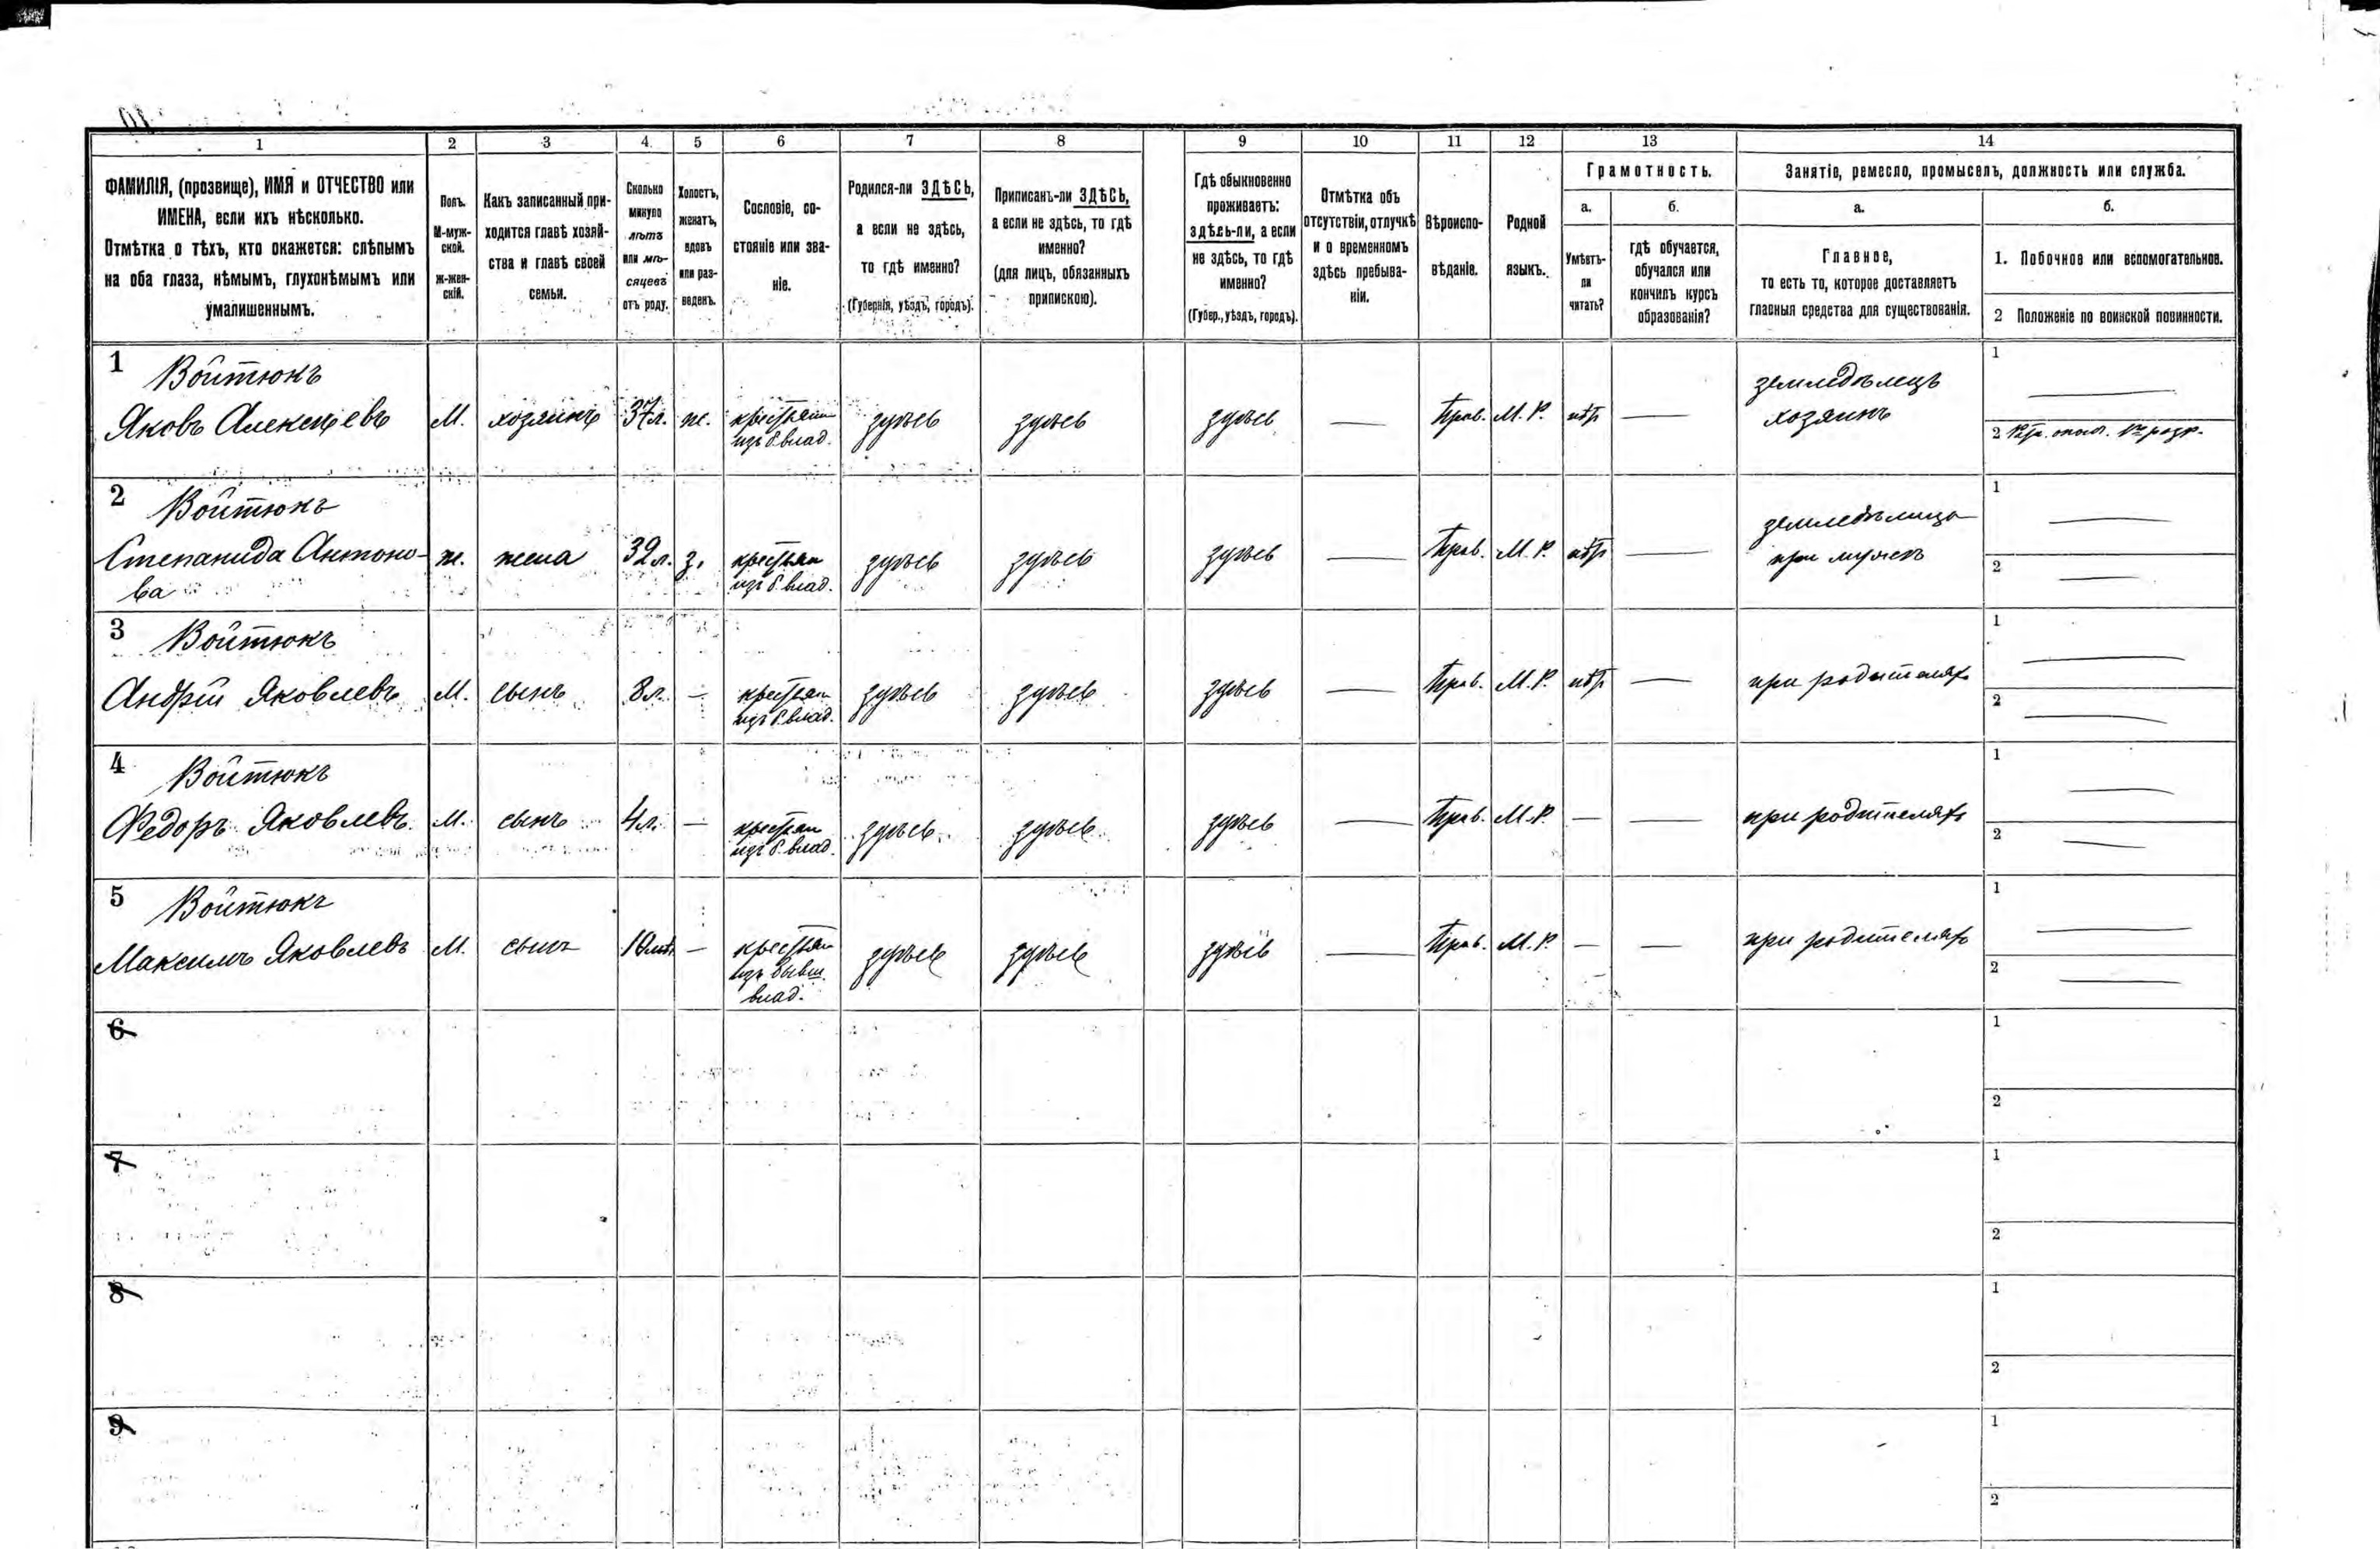 1 2 3 4 5 6 7 8 9 10 11 12 13 14
ФАМИЛІЯ, (прозвище), ИМЯ и ОТЧЕСТВО или
ИМЕНА, если ихъ нѣсколько.
Отмѣтка о тѣхъ, кто окажется: слѣпымъ
на оба глаза, нѣмымъ, глухонѣмымъ или
умалишеннымъ.
Полъ.
М-муж-
ской.
Ж-жен-
скій.
Какъ записанный при-
ходится главѣ хозяй-
ства и главѣ своей
семьи.
Сколько
минуло
лѣтъ
или мѣ-
сяцевъ
отъ роду.
Холостъ,
женатъ,
вдовъ
или раз-
веденъ.
Сословіе, со-
стояніе или зва-
ніе.
Родился-ли ЗДѢСЬ,
а если не здѣсь,
то гдѣ именно?
(Губернія, уѣздъ, городъ).
Приписанъ-ли ЗДѢСЬ,
а если не здѣсь, то гдѣ
именно?
(для лицъ, обязанныхъ
припискою).
Гдѣ обыкновенно
проживаетъ:
здѣсь-ли, а если
не здѣсь, то гдѣ
именно?
(Губер., уѣздъ, городъ).
Отмѣтка объ
отсутствіи, отлучкѣ
и о временномъ
здѣсь пребыва-
ніи.
Вѣроиспо-
вѣданіе.
Родной
языкъ.
Грамотность.
а.
Умѣетъ-
ли
читать?
б.
гдѣ обучается,
обучался или
кончилъ курсъ
образованія?
Занятіе, ремесло, промыселъ, должность или служба.
а.
Главное,
то есть то, которое доставляетъ
главныя средства для существованія.
б.
1. Побочное или вспомогательное.
2 Положеніе по воинской повинности.
1 Войтюкъ
Яковъ Алексѣевъ
М.
хозяинъ
37 л.
же.
крестьян
изъ б. влад.
здѣсь
здѣсь
здѣсь
—
Прав.
М. Р.
нѣт
—
земледѣлецъ
хозяинъ
1 —
2
2 Войтюкъ
Степанида Антоно-
ва
ж.
жена
32 л.
з.
крестьян
изъ б. влад.
здѣсь
здѣсь
здѣсь
—
Прав.
М. Р.
нѣт
—
земледѣлица
при мужѣ
1 —
2 —
3 Войтюкъ
Андрій Яковлевъ
М.
сынъ
8 л.
—
крестьян
изъ б. влад.
здѣсь
здѣсь
здѣсь
—
Прав.
М. Р.
нѣт
—
при родителях
1 —
2 —
4 Войтюкъ
Федоръ Яковлевъ
М.
сынъ
4 л.
—
крестьян
изъ б. влад.
здѣсь
здѣсь
здѣсь
—
Прав.
М. Р.
—
—
при родителях
1 —
2 —
5 Войтюкъ
Максимъ Яковлевъ
М.
сынъ
—
крестьян
изъ бывш.
влад.
здѣсь
здѣсь
здѣсь
—
Прав.
М. Р.
—
—
при родителях
1 —
2 —
6
1
2
7
1
2
8
1
2
9
1
2